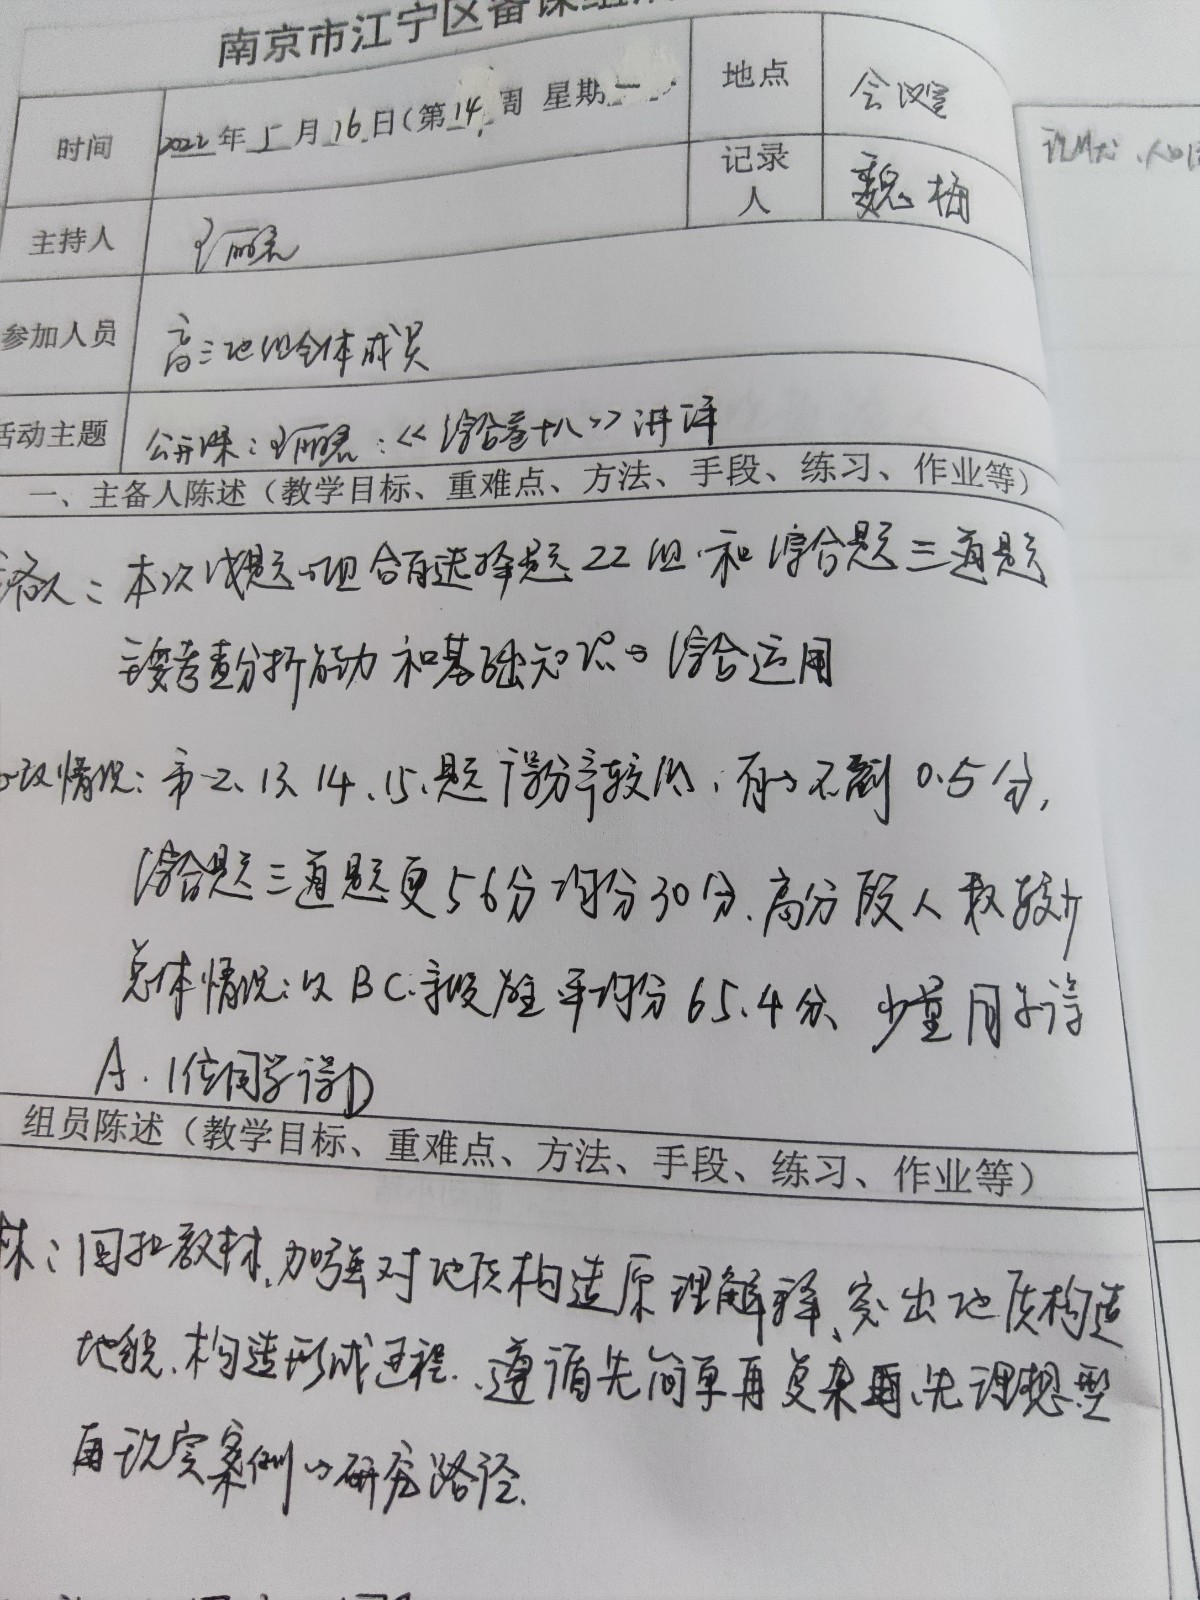 南京市江宁区备课组
时间 2022年5月16日(第14周 星期一 地点 会议室
记录人 魏梅
主持人 王丽君
参加人员 高三地组全体成员
活动主题 公开课：王丽君：《综合卷十八》讲评
一、主备人陈述（教学目标、重难点、方法、手段、练习、作业等）
备人：本次试题的组合有选择题22组和综合题三道题
主要考查分析能力和基础知识的综合运用
情况：第2、13、14、15、题得分率较低，有的不到0.5分，
综合题三道题更56分均分30分、高分段人数较少
总体情况：以BC手段为主 平均分65.4分、少量同学得
A.1位同学得D
组员陈述（教学目标、重难点、方法、手段、练习、作业等）
林：回扣教材，加强对地质构造原理解释、突出地质构造
地貌、构造形成过程、遵循先简单再复杂、先理想型
再现实案例的研究路径.